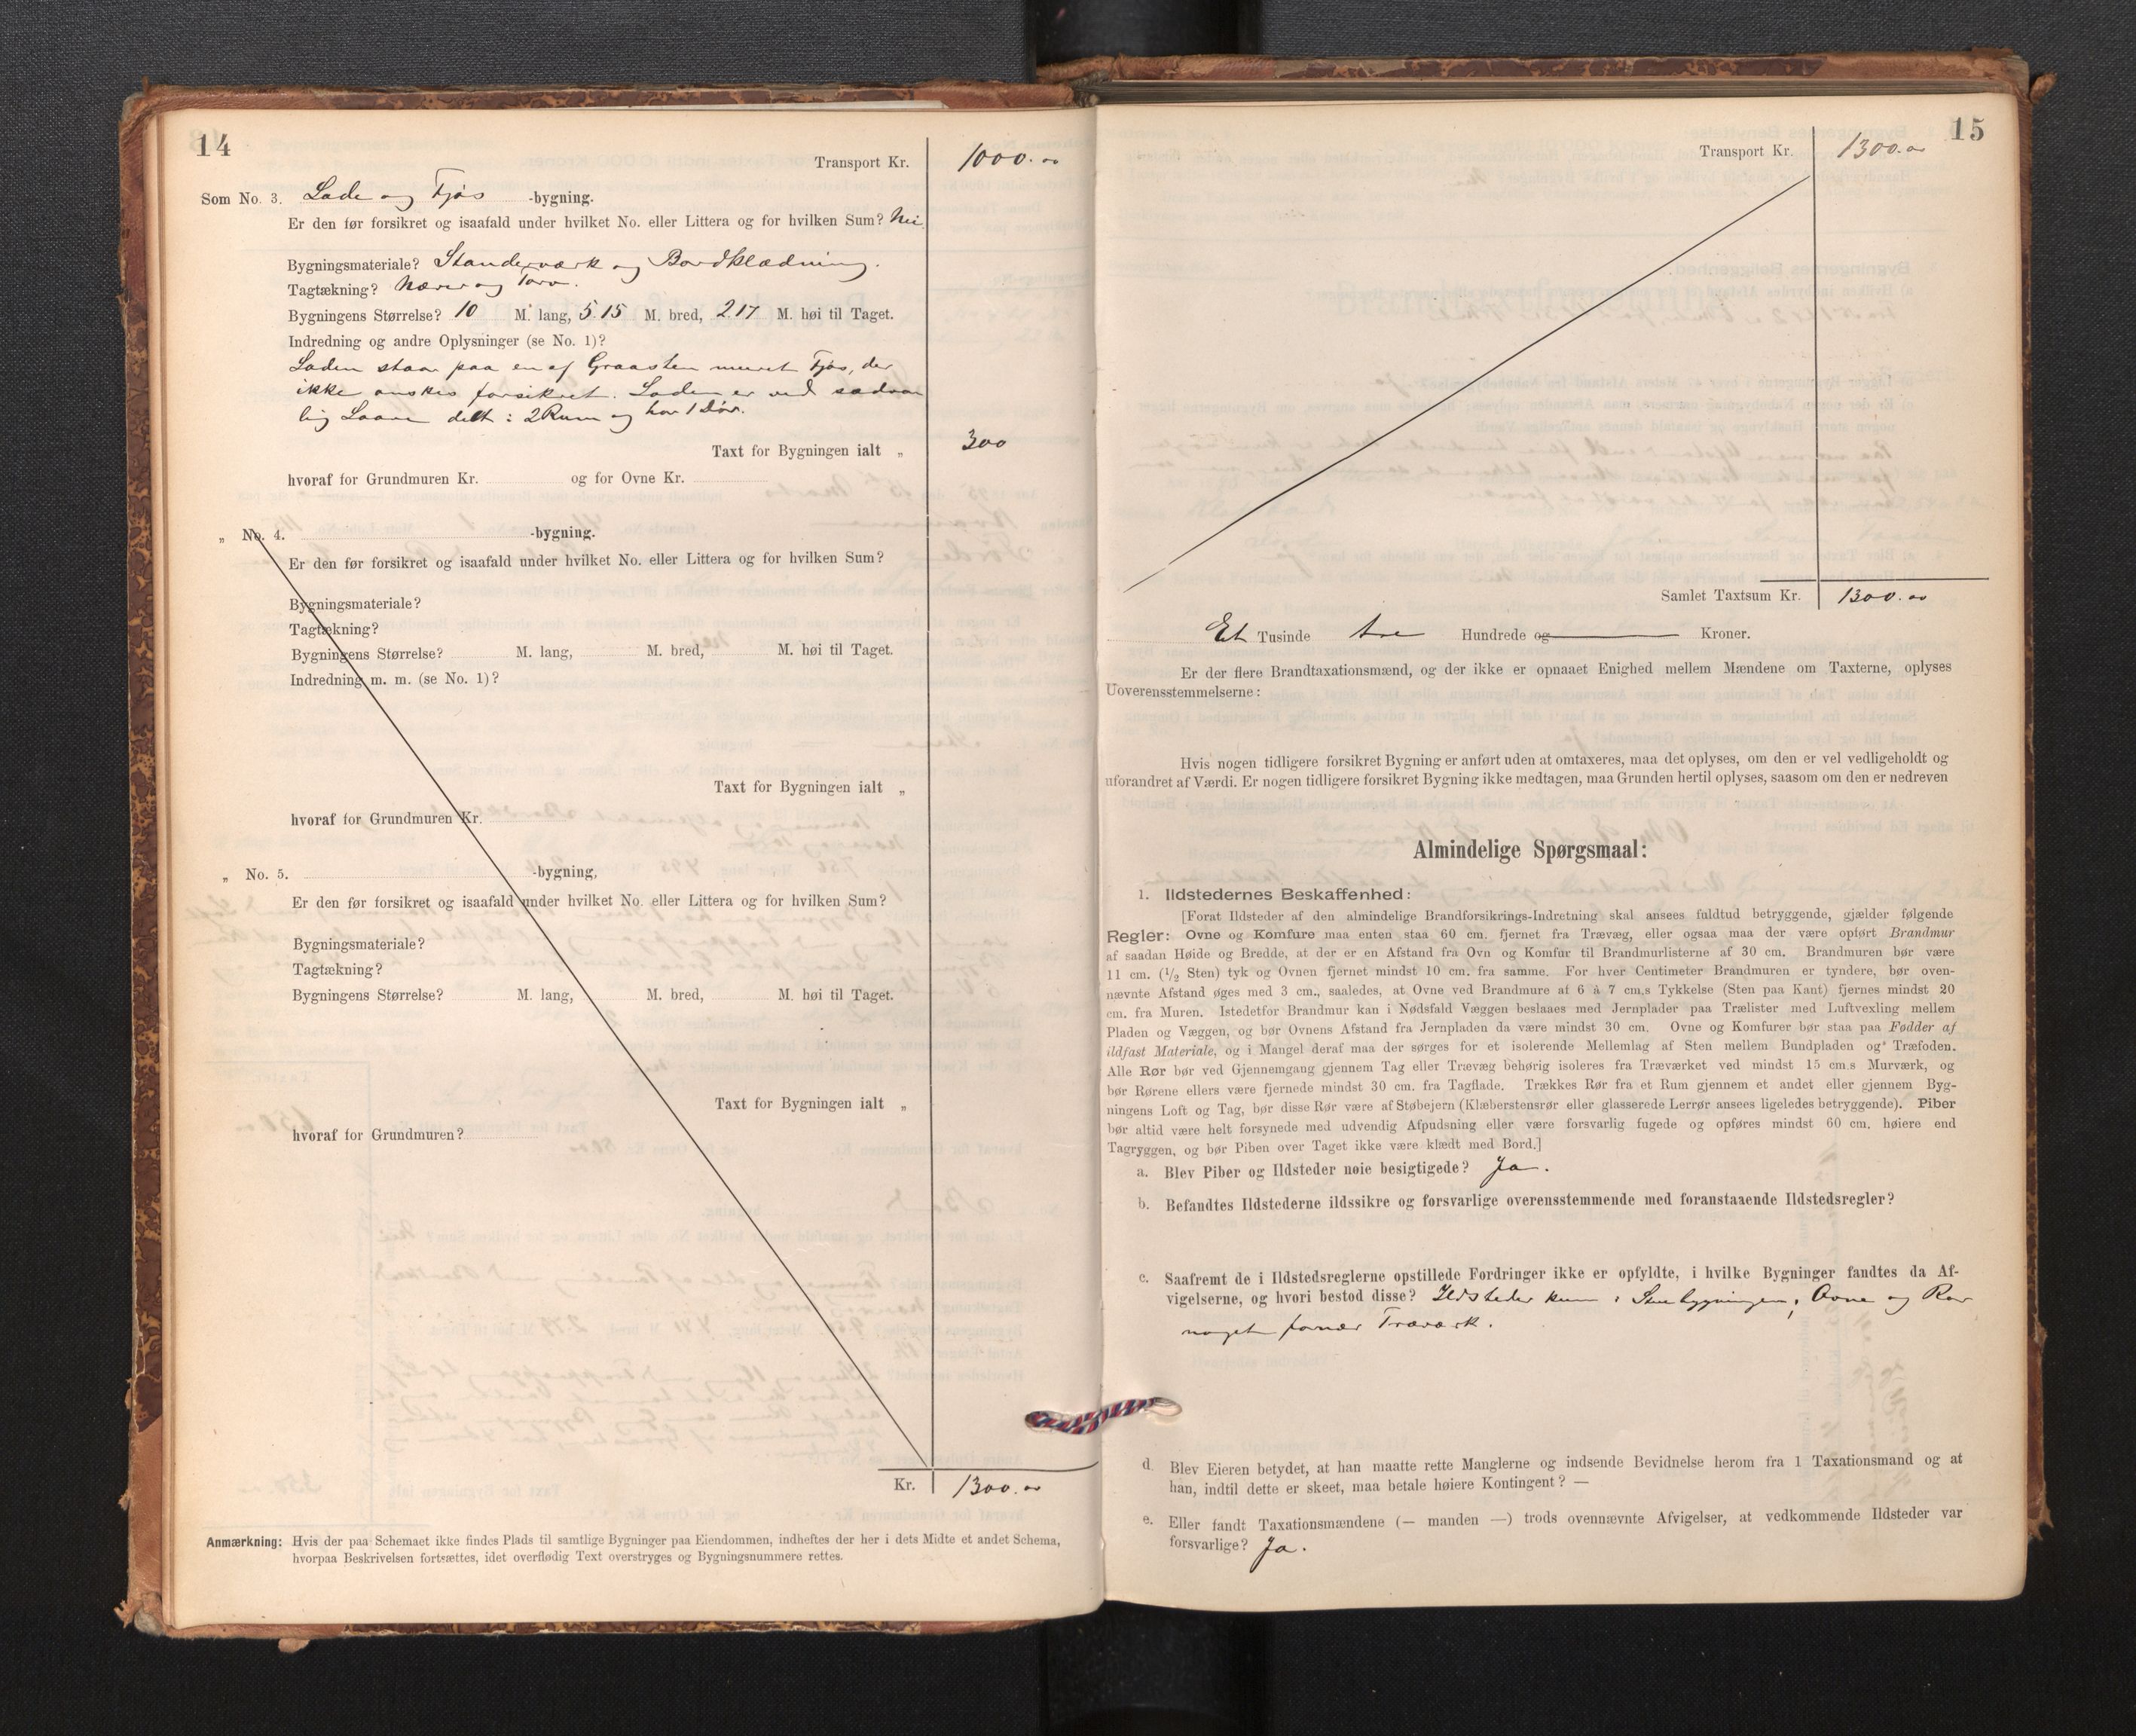 14
Transport Kr. 1000.00
Som No. 3. Lade og Fjøs -bygning.
Er den før forsikret og isaafald under hvilket No. eller Littera og for hvilken Sum? Nei
Bygningsmateriale? Standerværk og Bordklædning.
Tagtækning? Næver og Torv.
Bygningens Størrelse? 10 M. lang, 5.15 M. bred, 2.17 M. høi til Taget.
Indredning og andre Oplysninger (se No. 1)?
Laden staar paa en af Graasten muret Fjøs, der
ikke ønskes forsikret. Laden er ved sædvan
lig Laave delt i 2 Rum og har 1 Dør.
Taxt for Bygningen ialt „ 300
hvoraf for Grundmuren Kr. og for Ovne Kr.
„ No. 4. -bygning.
Er den før forsikret og isaafald under hvilket No. eller Littera og for hvilken Sum?
Bygningsmateriale?
Tagtækning?
Bygningens Størrelse? M. lang, M. bred, M. høi til Taget.
Indredning m. m. (se No. 1)?
Taxt for Bygningen ialt „
hvoraf for Grundmuren Kr.
„ No. 5. -bygning,
Er den før forsikret og isaafald under hvilket No. eller Littera og for hvilken Sum?
Bygningsmateriale?
Tagtækning?
Bygningens Størrelse? M. lang, M. bred, M. høi til Taget.
Taxt for Bygningen ialt „
hvoraf for Grundmuren?
Kr. 1300.00
Anmærkning: Hvis der paa Schemaet ikke findes Plads til samtlige Bygninger paa Eiendommen, indheftes der her i dets Midte et andet Schema,
hvorpaa Beskrivelsen fortsættes, idet overflødig Text overstryges og Bygningsnummere rettes.
15
Transport Kr. 1300.00
Samlet Taxtsum Kr. 1300.00
Et Tusinde tre Hundrede og Kroner.
Er der flere Brandtaxationsmænd, og der ikke er opnaaet Enighed mellem Mændene om Taxterne, oplyses
Uoverensstemmelserne:
Hvis nogen tidligere forsikret Bygning er anført uden at omtaxeres, maa det oplyses, om den er vel vedligeholdt og
uforandret af Værdi. Er nogen tidligere forsikret Bygning ikke medtagen, maa Grunden hertil oplyses, saasom om den er nedreven
Almindelige Spørgsmaal:
1. Ildstedernes Beskaffenhed:
[Forat Ildsteder af den almindelige Brandforsikrings-Indretning skal ansees fuldtud betryggende, gjælder følgende
Regler: Ovne og Komfure maa enten staa 60 cm. fjernet fra Trævæg, eller ogsaa maa der være opført Brandmur
af saadan Høide og Bredde, at der er en Afstand fra Ovn og Komfur til Brandmurlisterne af 30 cm. Brandmuren bør være
11 cm. (1/2 Sten) tyk og Ovnen fjernet mindst 10 cm. fra samme. For hver Centimeter Brandmuren er tyndere, bør oven-
nævnte Afstand øges med 3 cm., saaledes, at Ovne ved Brandmure af 6 à 7 cm.s Tykkelse (Sten paa Kant) fjernes mindst 20
cm. fra Muren. Istedetfor Brandmur kan i Nødsfald Væggen beslaaes med Jernplader paa Trælister med Luftvexling mellem
Pladen og Væggen, og bør Ovnens Afstand fra Jernpladen da være mindst 30 cm. Ovne og Komfurer bør staa paa Fødder af
ildfast Materiale, og i Mangel deraf maa der sørges for et isolerende Mellemlag af Sten mellem Bundpladen og Træfoden.
Alle Rør bør ved Gjennemgang gjennem Tag eller Trævæg behørig isoleres fra Træværket ved mindst 15 cm.s Murværk, og
bør Rørene ellers være fjernede mindst 30 cm. fra Tagflade. Trækkes Rør fra et Rum gjennem et andet eller gjennem Byg-
ningens Loft og Tag, bør disse Rør være af Støbejern (Klæberstensrør eller glasserede Lerrør ansees ligeledes betryggende). Piber
bør altid være helt forsynede med udvendig Afpudsning eller være forsvarlig fugede og opføres mindst 60 cm. høiere end
Tagryggen, og bør Piben over Taget ikke være klædt med Bord.]
a. Blev Piber og Ildsteder nøie besigtigede? Ja.
b. Befandtes Ildstederne ildssikre og forsvarlige overensstemmende med foranstaaende Ildstedsregler?
c. Saafremt de i Ildstedsreglerne opstillede Fordringer ikke er opfyldte, i hvilke Bygninger fandtes da Af-
vigelserne, og hvori bestod disse? Ildsteder kun i Stuebygningen; Ovne og Rør
noget fornær Træværk.
d. Blev Eieren betydet, at han maatte rette Manglerne og indsende Bevidnelse herom fra 1 Taxationsmand og at
han, indtil dette er skeet, maa betale høiere Kontingent? —
e. Eller fandt Taxationsmændene (— manden —) trods ovennævnte Afvigelser, at vedkommende Ildsteder var
forsvarlige? Ja.